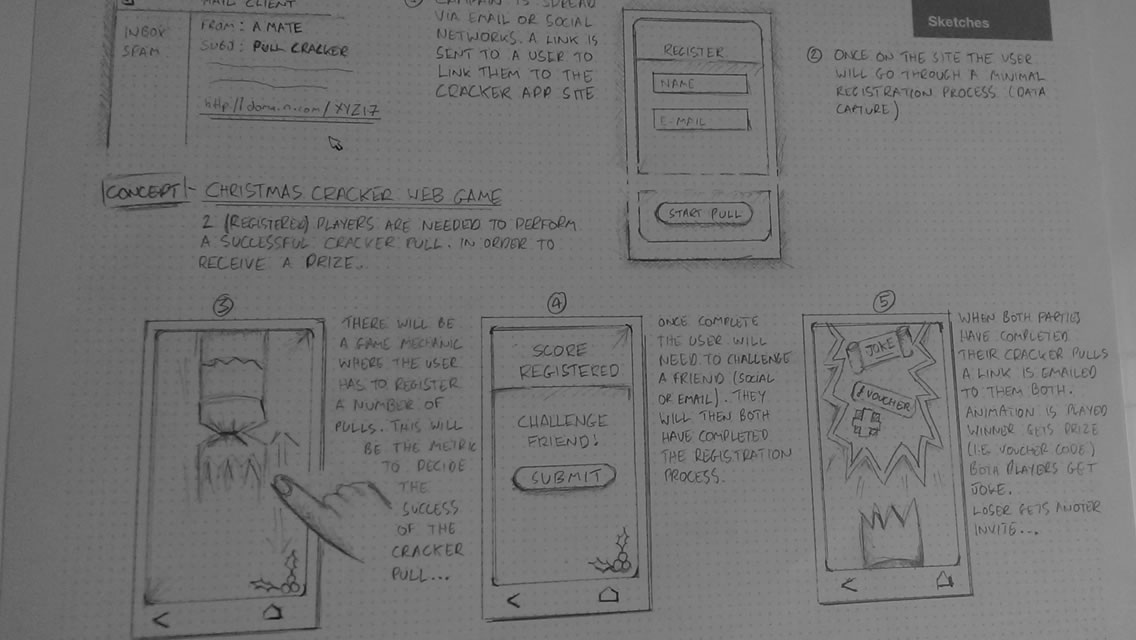 MAIL CLIENT
INBOX
SPAM
FROM: A MATE
SUBJ: PULL CRACKER
http://domain.com/XYZ17
① CAMPAIGN IS SPREAD
VIA EMAIL OR SOCIAL
NETWORKS. A LINK IS
SENT TO A USER TO
LINK THEM TO THE
CRACKER APP SITE
REGISTER
NAME
E-MAIL
START PULL
Sketches
② ONCE ON THE SITE THE USER
WILL GO THROUGH A MINIMAL
REGISTRATION PROCESS (DATA
CAPTURE)
CONCEPT - CHRISTMAS CRACKER WEB GAME
2 (REGISTERED) PLAYERS ARE NEEDED TO PERFORM
A SUCCESSFUL CRACKER PULL. IN ORDER TO
RECEIVE A PRIZE..
③
THERE WILL BE
A GAME MECHANIC
WHERE THE USER
HAS TO REGISTER
A NUMBER OF
PULLS. THIS WILL
BE THE METRIC
TO DECIDE
THE
SUCCESS
OF THE
CRACKER
PULL...
④
SCORE
REGISTERED
CHALLENGE
FRIEND!
SUBMIT
ONCE COMPLETE
THE USER WILL
NEED TO CHALLENGE
A FRIEND (SOCIAL
OR EMAIL). THEY
WILL THEN BOTH
HAVE COMPLETED
THE REGISTRATION
PROCESS.
⑤
JOKE
VOUCHER
WHEN BOTH PARTIES
HAVE COMPLETED
THEIR CRACKER PULLS
A LINK IS EMAILED
TO THEM BOTH.
ANIMATION IS PLAYED
WINNER GETS PRIZE
(I.E VOUCHER CODE)
BOTH PLAYERS GET
JOKE.
LOSER GETS ANOTER
INVITE....